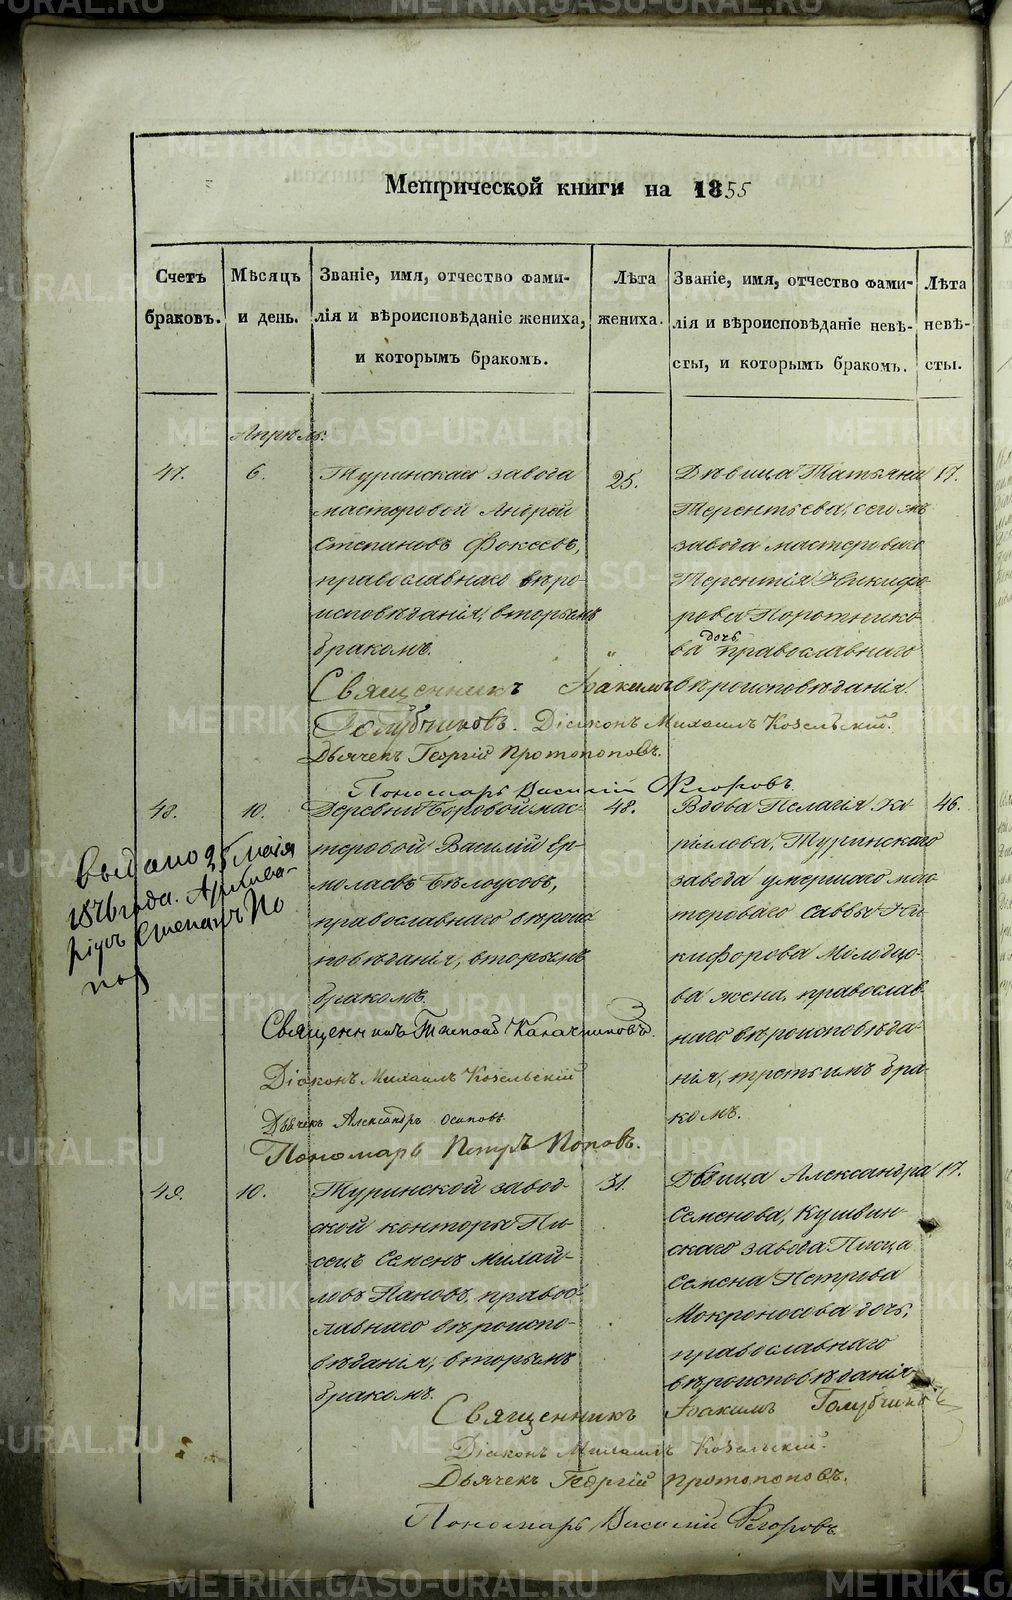 Метрической книги на 1855
Счетъ браковъ.
Мѣсяцъ и день.
Званіе, имя, отчество фами-
лія и вѣроисповѣданіе жениха,
и которымъ бракомъ.
Лѣта жениха.
Званіе, имя, отчество фами-
лія и вѣроисповѣданіе невѣ-
сты, и которымъ бракомъ.
Лѣта невѣ-
сты.
Апрѣль.
47.
6.
Туринскаго завода
мастеровой Андрей
Степановъ Фокеевъ,
православнаго вѣро
исповѣданія, вторымъ
бракомъ.
25.
Дѣвица Татьяна
Терентьева, сего жъ
завода мастероваго
Терентія Никифо
рова Поротнико
ва дочь православнаго
вѣроисповѣданія.
17.
Священникъ Іоакимъ
Голубчиковъ. Діаконъ Михаилъ Козельскій.
Дьячекъ Георгій Протопоповъ.
Пономарь Василій Флоровъ.
48.
10.
Деревни Боровой мас-
теровой Василій Ер-
молаевъ Бѣлоусовъ,
православнаго вѣроис
повѣданія, вторымъ
бракомъ.
48.
Вдова Пелагія Ки
риллова, Туринскаго
завода умершаго мас
тероваго Саввы Ни-
кифорова Молодцо-
ва жена, православ
наго вѣроисповѣда-
нія, третьимъ бра-
комъ.
46.
Выдано 25 Мая
1876 года.
Степанъ По
повъ
Священникъ Калачниковъ.
Діаконъ Михаилъ Козельскій
Дьячекъ Александръ Осиповъ
Пономарь Петръ Поповъ.
49.
10.
Туринской завод-
ской конторы Пи-
сецъ Семенъ Михай-
ловъ Пановъ, правос-
лавнаго вѣроиспо-
вѣданія, вторымъ
бракомъ.
31.
Дѣвица Александра
Семенова, Кушвин-
скаго завода Писца
Семена Петрова
Мокроносова дочь,
православнаго
вѣроисповѣданія
17.
Священникъ Іоакимъ Голубчиковъ
Діаконъ Михаилъ Козельскій.
Дьячекъ Георгій Протопоповъ.
Пономарь Василій Флоровъ
METRIKI.GASO-URAL.RU